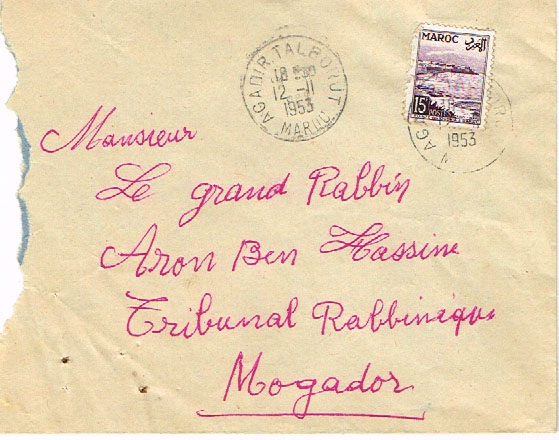 AGADIR.TALBORJT
18
12 -11
1953
MAROC
MAROC
المغرب
15F
POSTES
1953
Monsieur
Le grand Rabbin
Aron Ben Hassine
Tribunal Rabbinique
Mogador